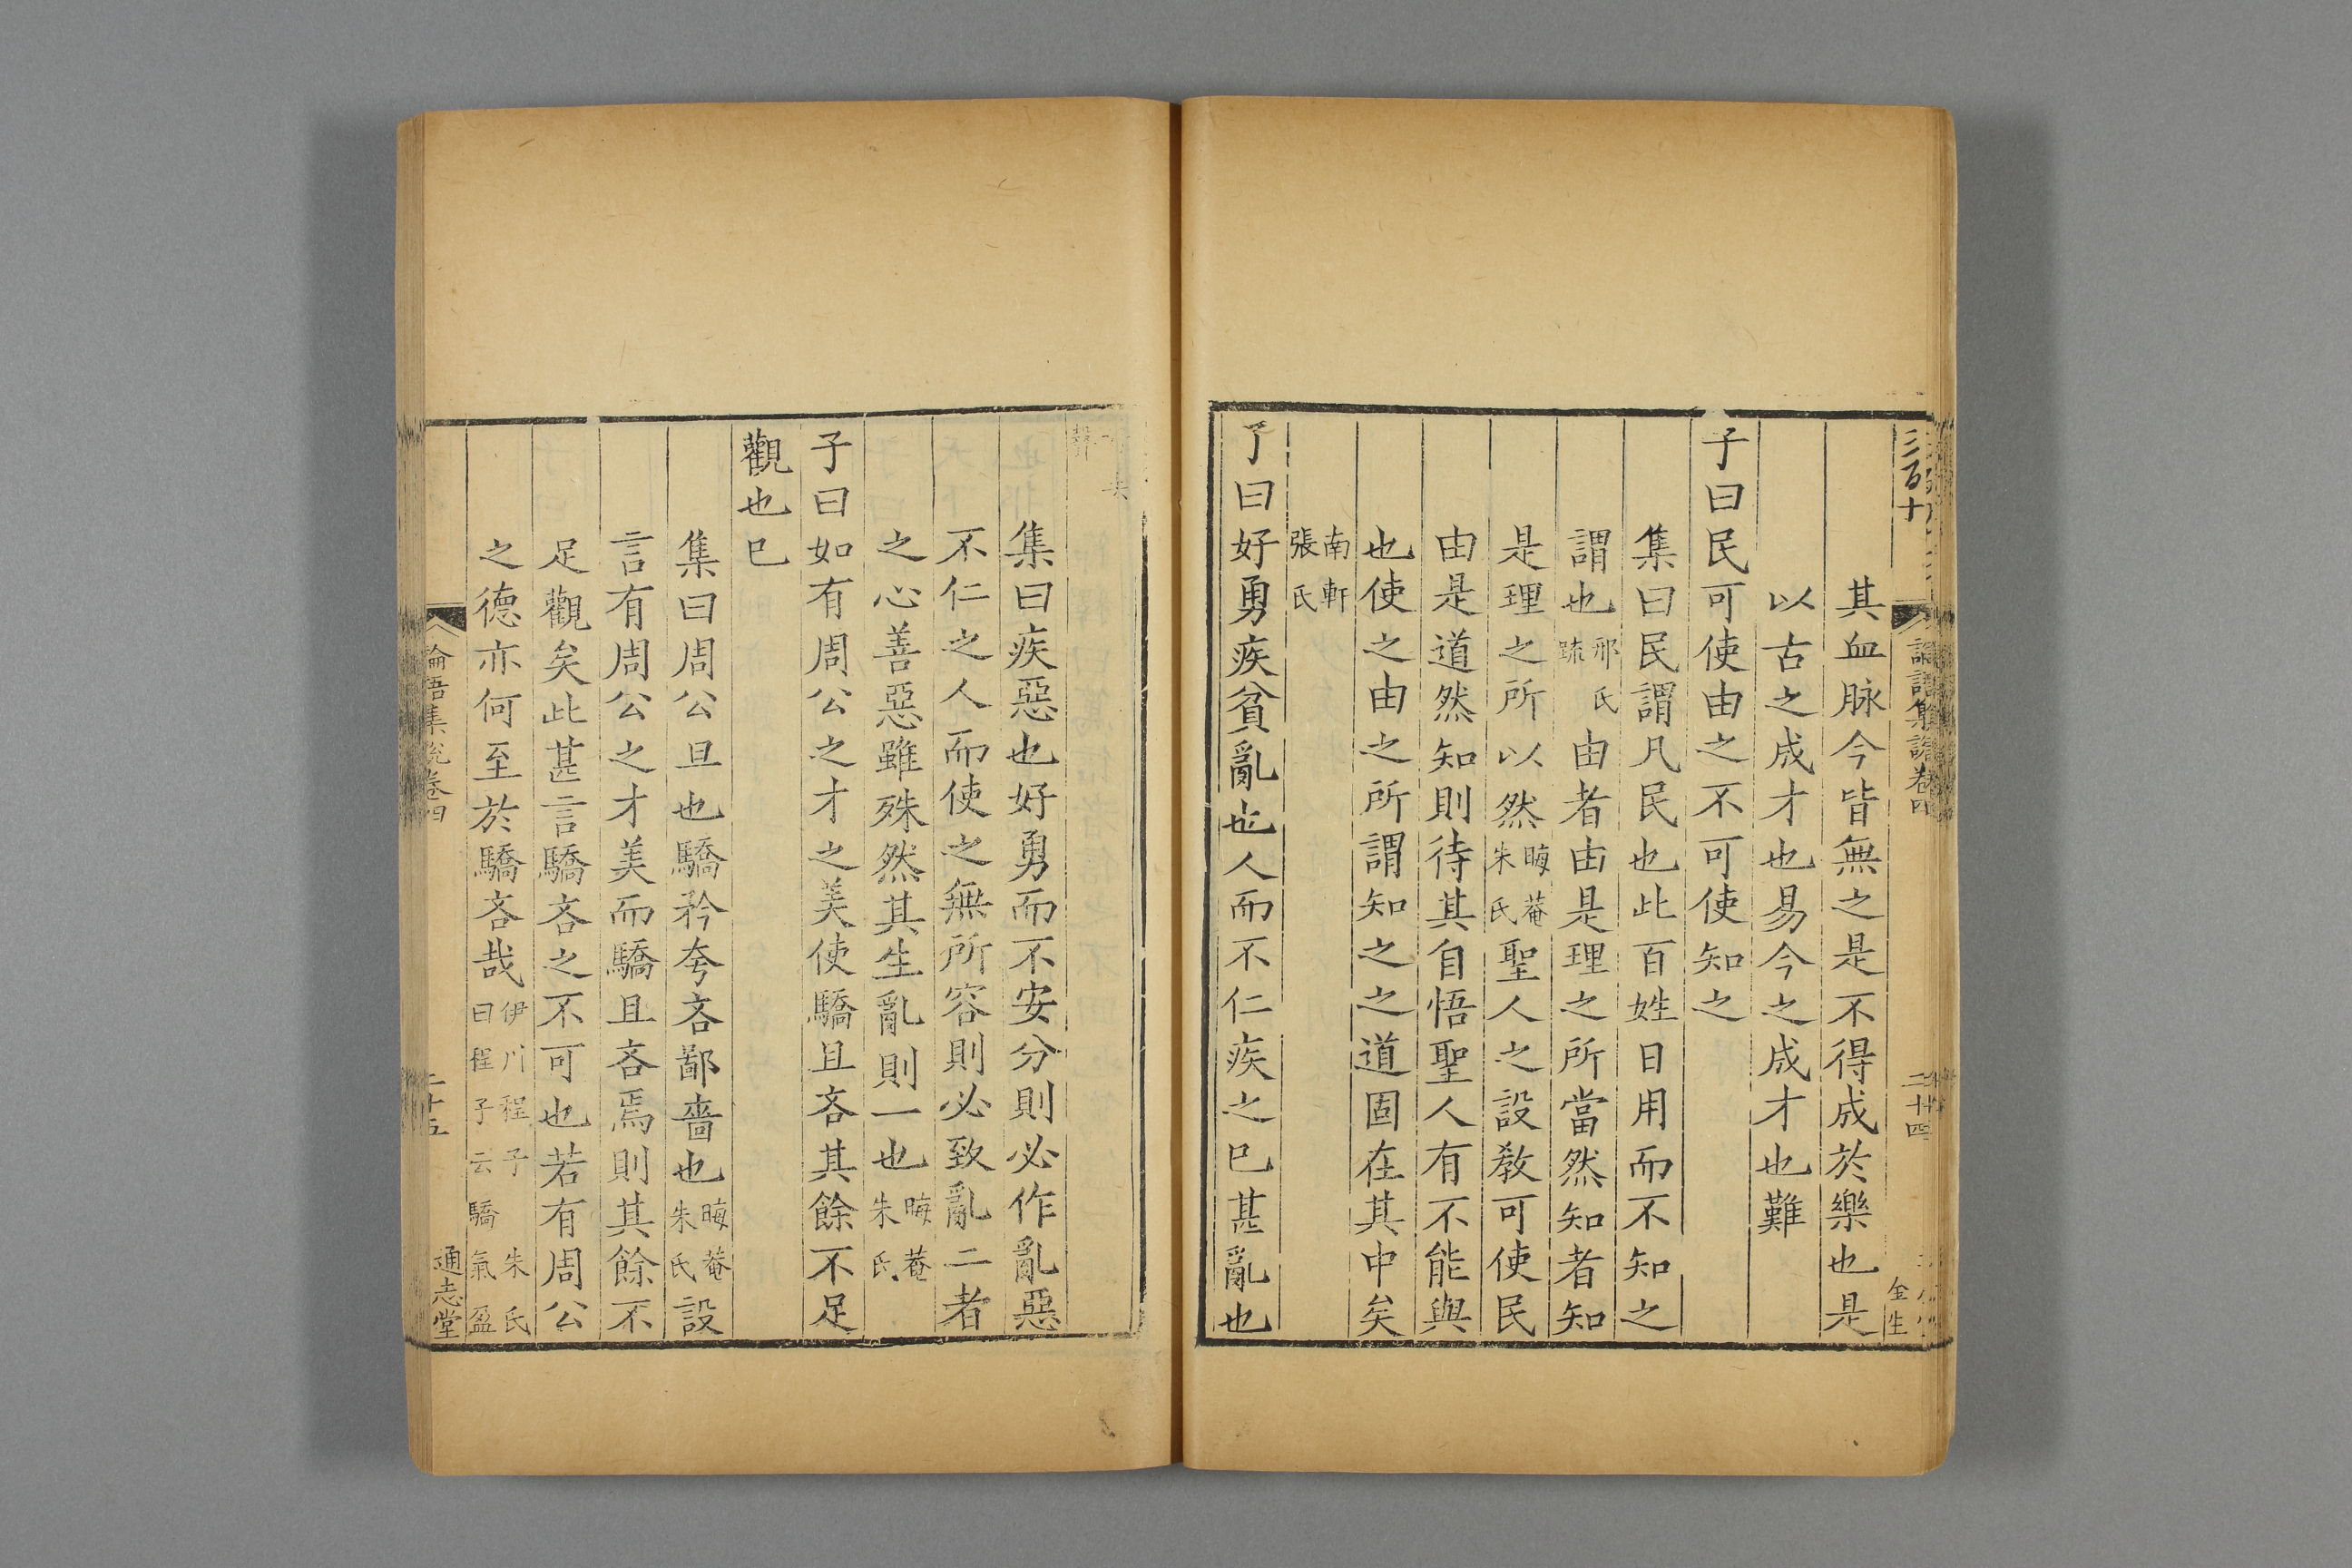 三百十
論語集說卷四
二十四
金生
其血脉今皆無之是不得成於樂也是
以古之成才也易今之成才也難
子曰民可使由之不可使知之
集曰民謂凡民也此百姓日用而不知之
謂也邢氏疏由者由是理之所當然知者知
是理之所以然晦菴朱氏聖人之設敎可使民
由是道然知則待其自悟聖人有不能與
也使之由之所謂知之之道固在其中矣
南軒張氏
子曰好勇疾貧亂也人而不仁疾之已甚亂也
集曰疾惡也好勇而不安分則必作亂惡
不仁之人而使之無所容則必致亂二者
之心善惡雖殊然其生亂則一也晦菴朱氏
子曰如有周公之才之美使驕且吝其餘不足
觀也已
集曰周公旦也驕矜夸吝鄙嗇也晦菴朱氏設
言有周公之才美而驕且吝焉則其餘不
足觀矣此甚言驕吝之不可也若有周公
之德亦何至於驕吝哉伊川程子 朱氏曰程子云驕氣盈
論語集說卷四
二十五
通志堂